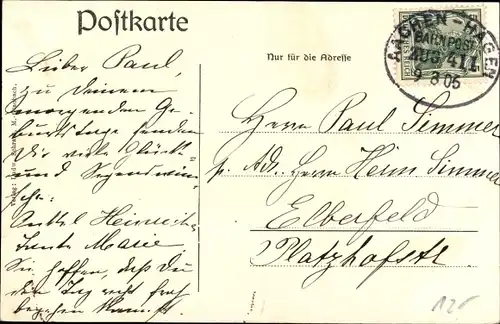 Postkarte
Nur für die Adresse
AACHEN-HAGEN
BAHNPOST
ZUG 411
9 3 05
Lieber Paul,
zu Deinem
morgenden Ge-
burtstage senden
Dir viele Glück-
und Segenswün-
sche.
Onkel Heinrich
Tante Marie
Sie hoffen, daß Du
den Tag recht froh
Herrn Paul Simmer
p. Ad. Herrn Herm. Simmer
Elberfeld
Platzhofstr.